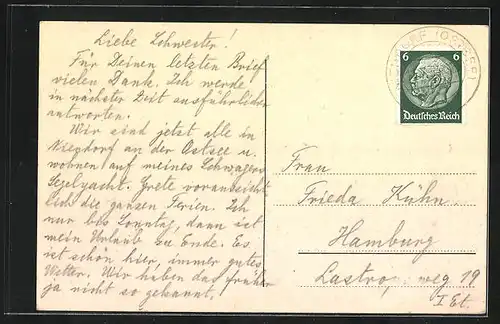 Liebe Schwester!
Für Deinen letzten Brief
vielen Dank. Ich werde
in nächster Zeit ausführlicher
antworten.
Wir sind jetzt alle in
Niendorf an der Ostsee u.
wohnen auf meines Schwagers
Segelyacht. Grete voraussicht-
lich die ganzen Ferien. Ich
nur bis Sonntag, dann ist
mein Urlaub zu Ende. Es
ist schön hier, immer gutes
Wetter. Wir haben das früher
ja nicht so gekannt.
6 6
Deutsches Reich
Frau
Frieda Kühn
Hamburg
weg 19
I Et.